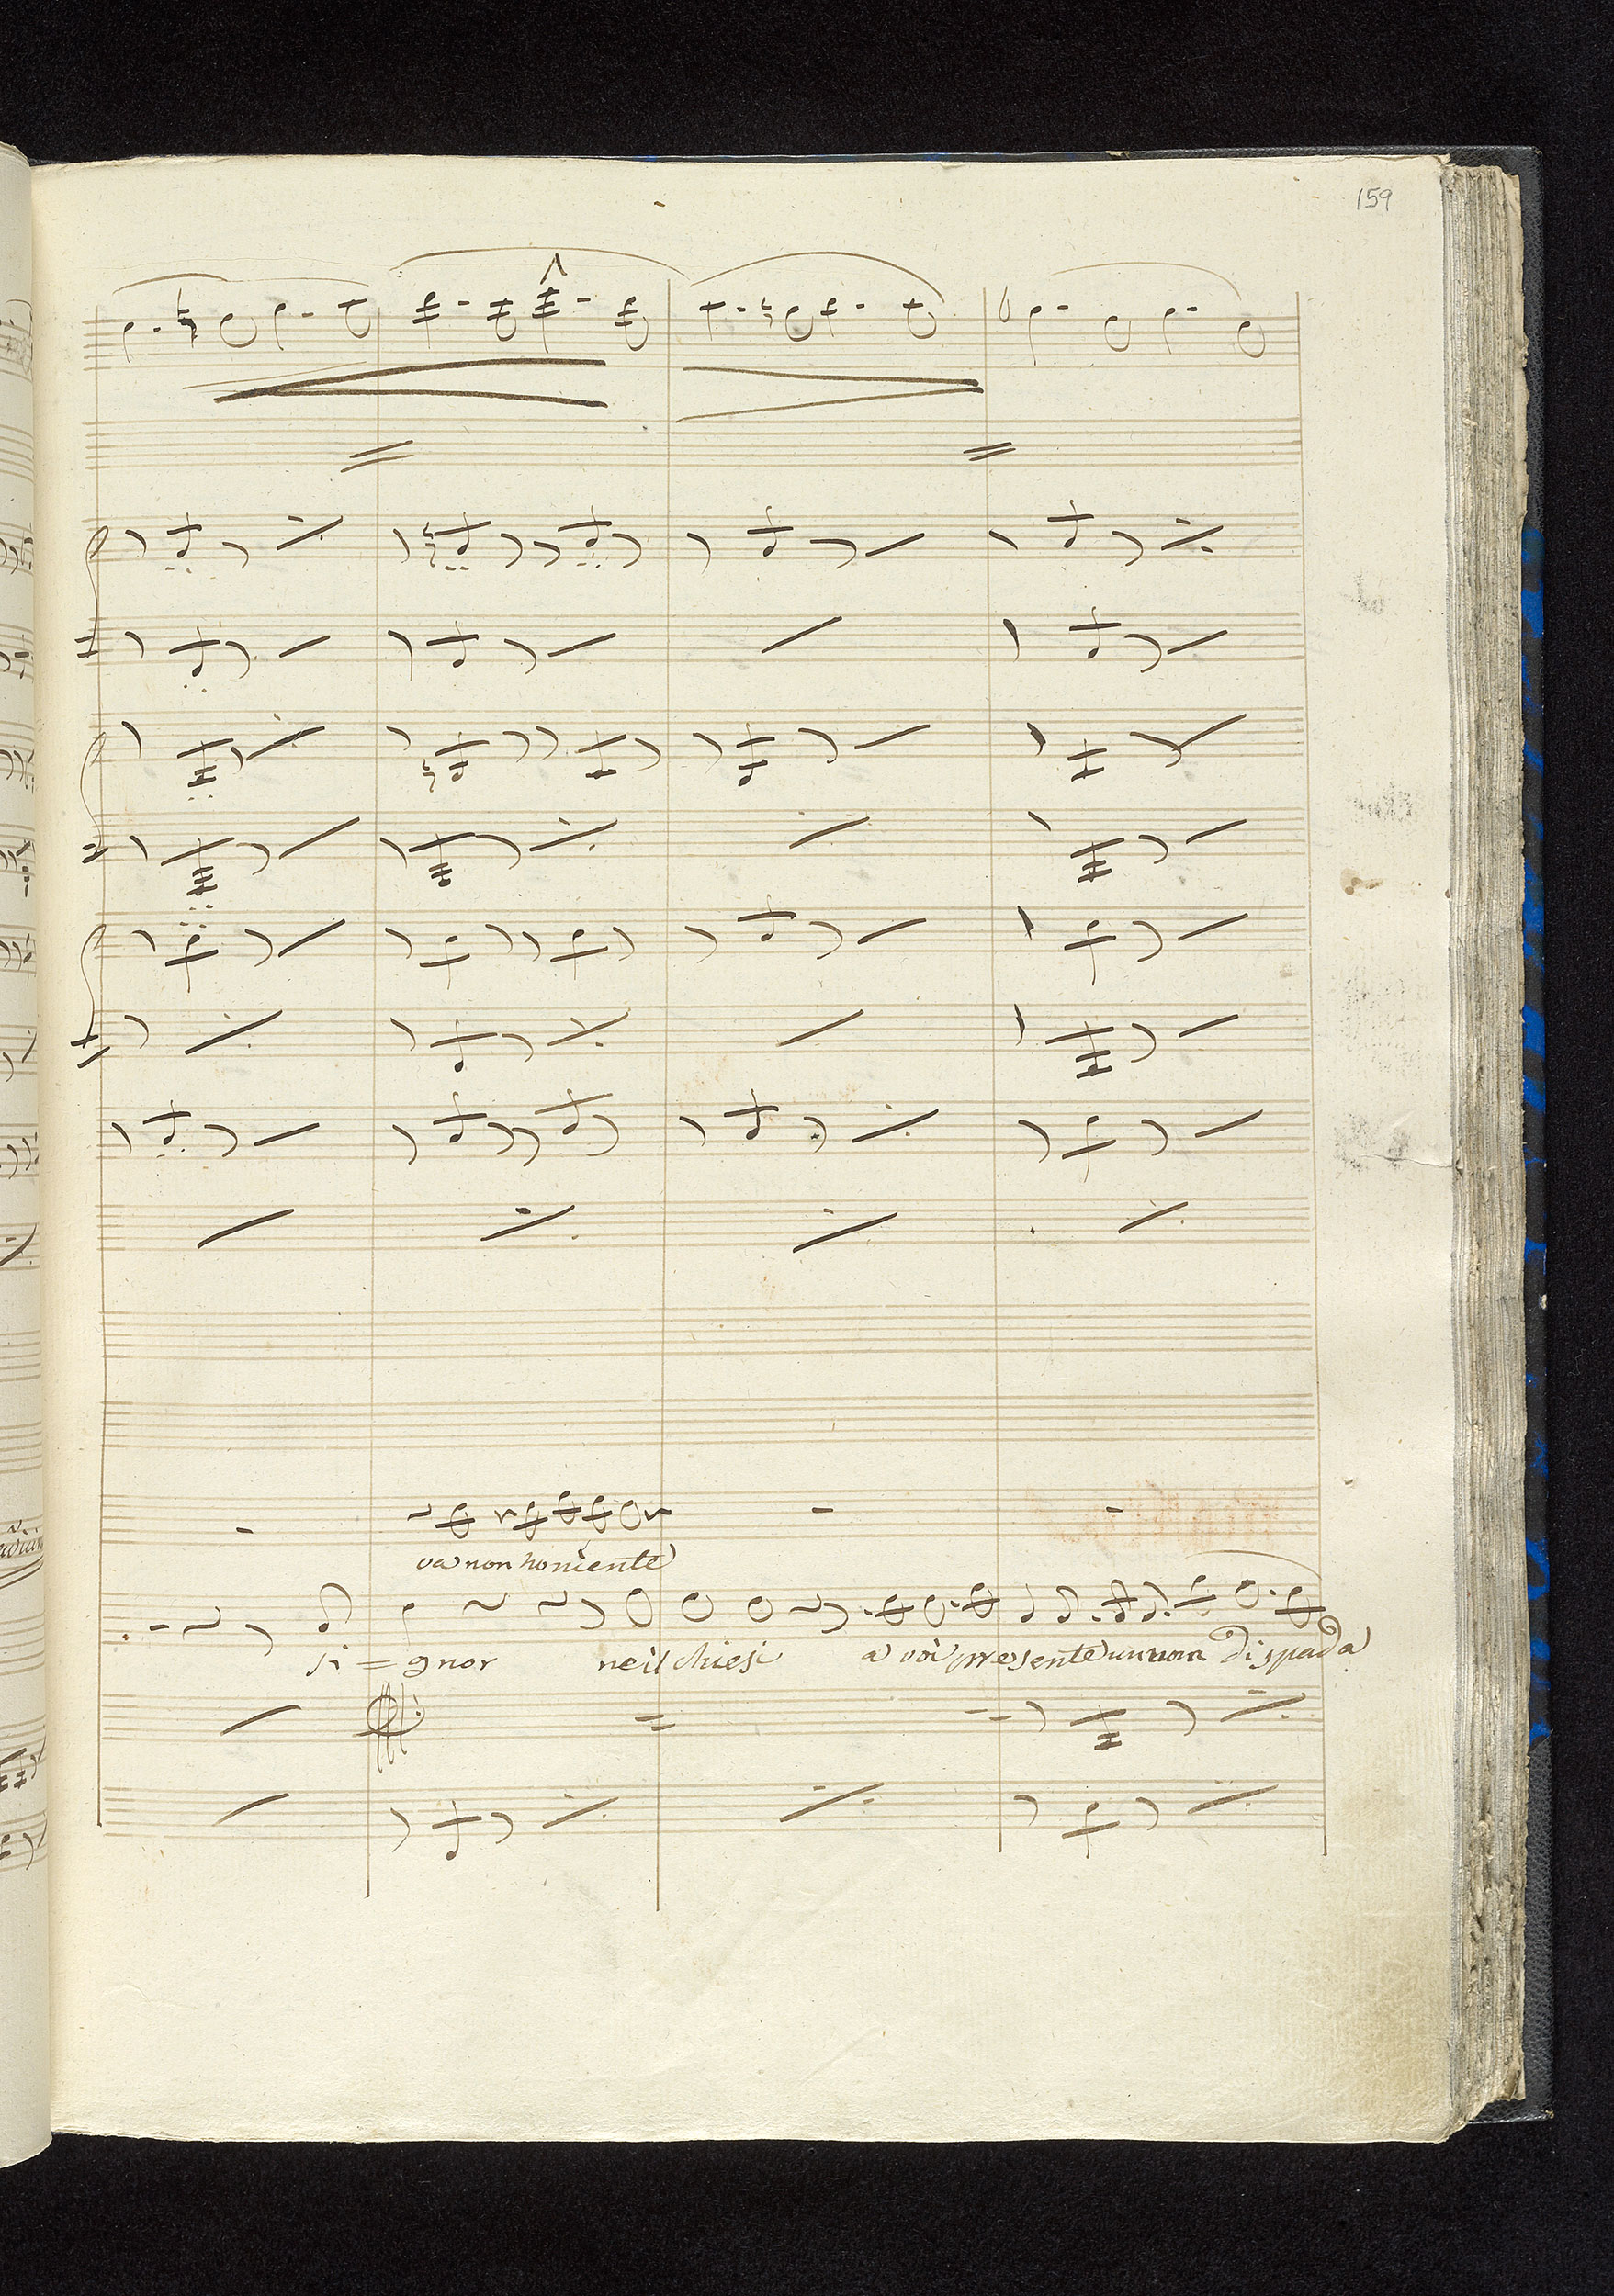 159
va non ho niente
si = gnor ne il chiesi a voi presente un uom di spada